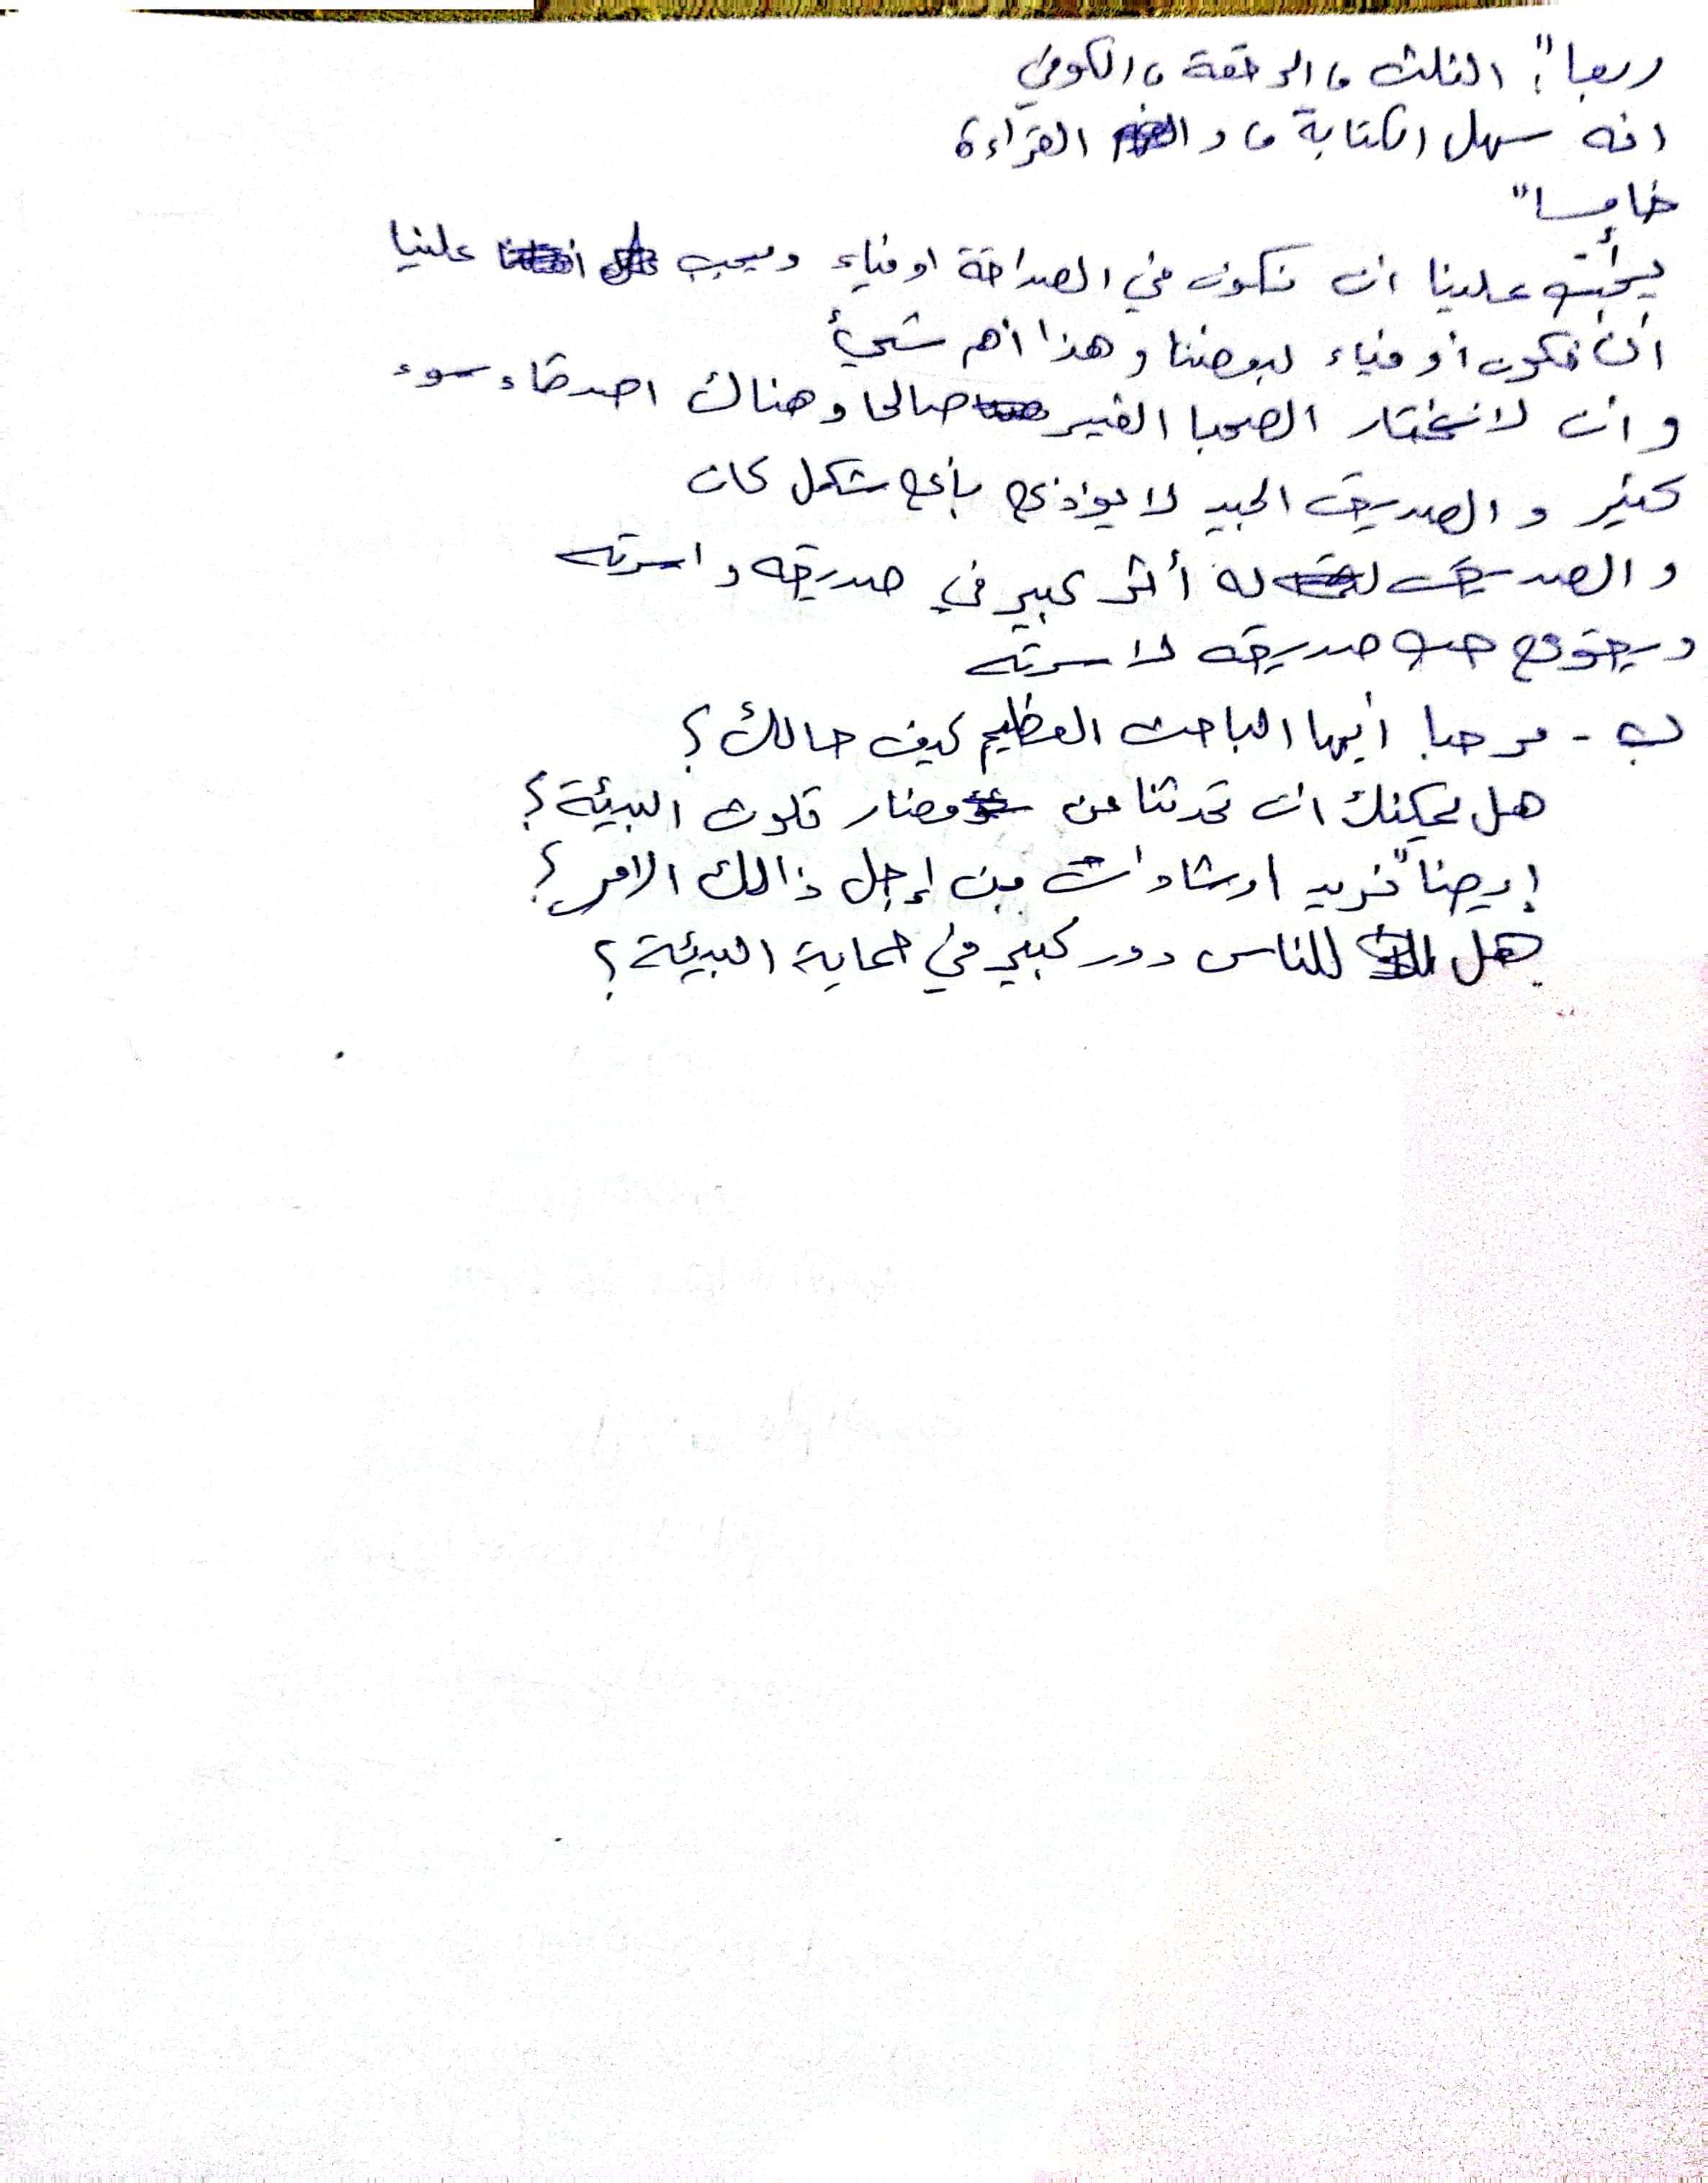 ربعا": الثلث، الرقعة، الكوفي
انه سهل الكتابة، و القراءة
خامسا"
يجب علينا ان نكون في الصداقة اوفياء ويجب علينا
ان نكون أوفياء لبعضنا وهذا أهم شيئ
وان لا نختار الصحبا الغير صالحا وهناك اصدقاء سوء
كثير و الصديق الجيد لا يؤذي بأي شكل كان
و الصديق له أثر كبير في صديقه و اسرته
ويقوي حب صديقه لاسرته
ب - مرحبا أيها الباحث العظيم كيف حالك؟
هل يمكنك ان تحدثنا عن مضار تلوث البيئة؟
إيضا" نريد ارشادات من إجل ذالك الامر؟
هل للناس دور كبير في حماية البيئة؟